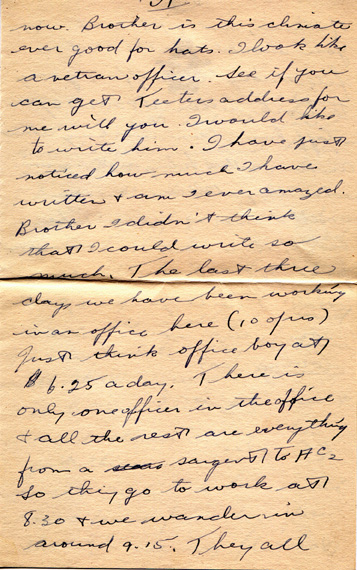 now. Brother is this climate
ever good for hats. I look like
a vetran officer. See if you
can get Teeters address for
me will you. I would like
to write him. I have just
noticed how much I have
written & am I ever amazed.
Brother I didn't think
that I could write so
much. The last three
days we have been working
in an office here (10 of us)
Just think office boy at
$6.25 a day. There is
only one officer in the office
& all the rest are everything
from a sargent to AC2
so they go to work at
8.30 & we wander in
around 9.15. They all